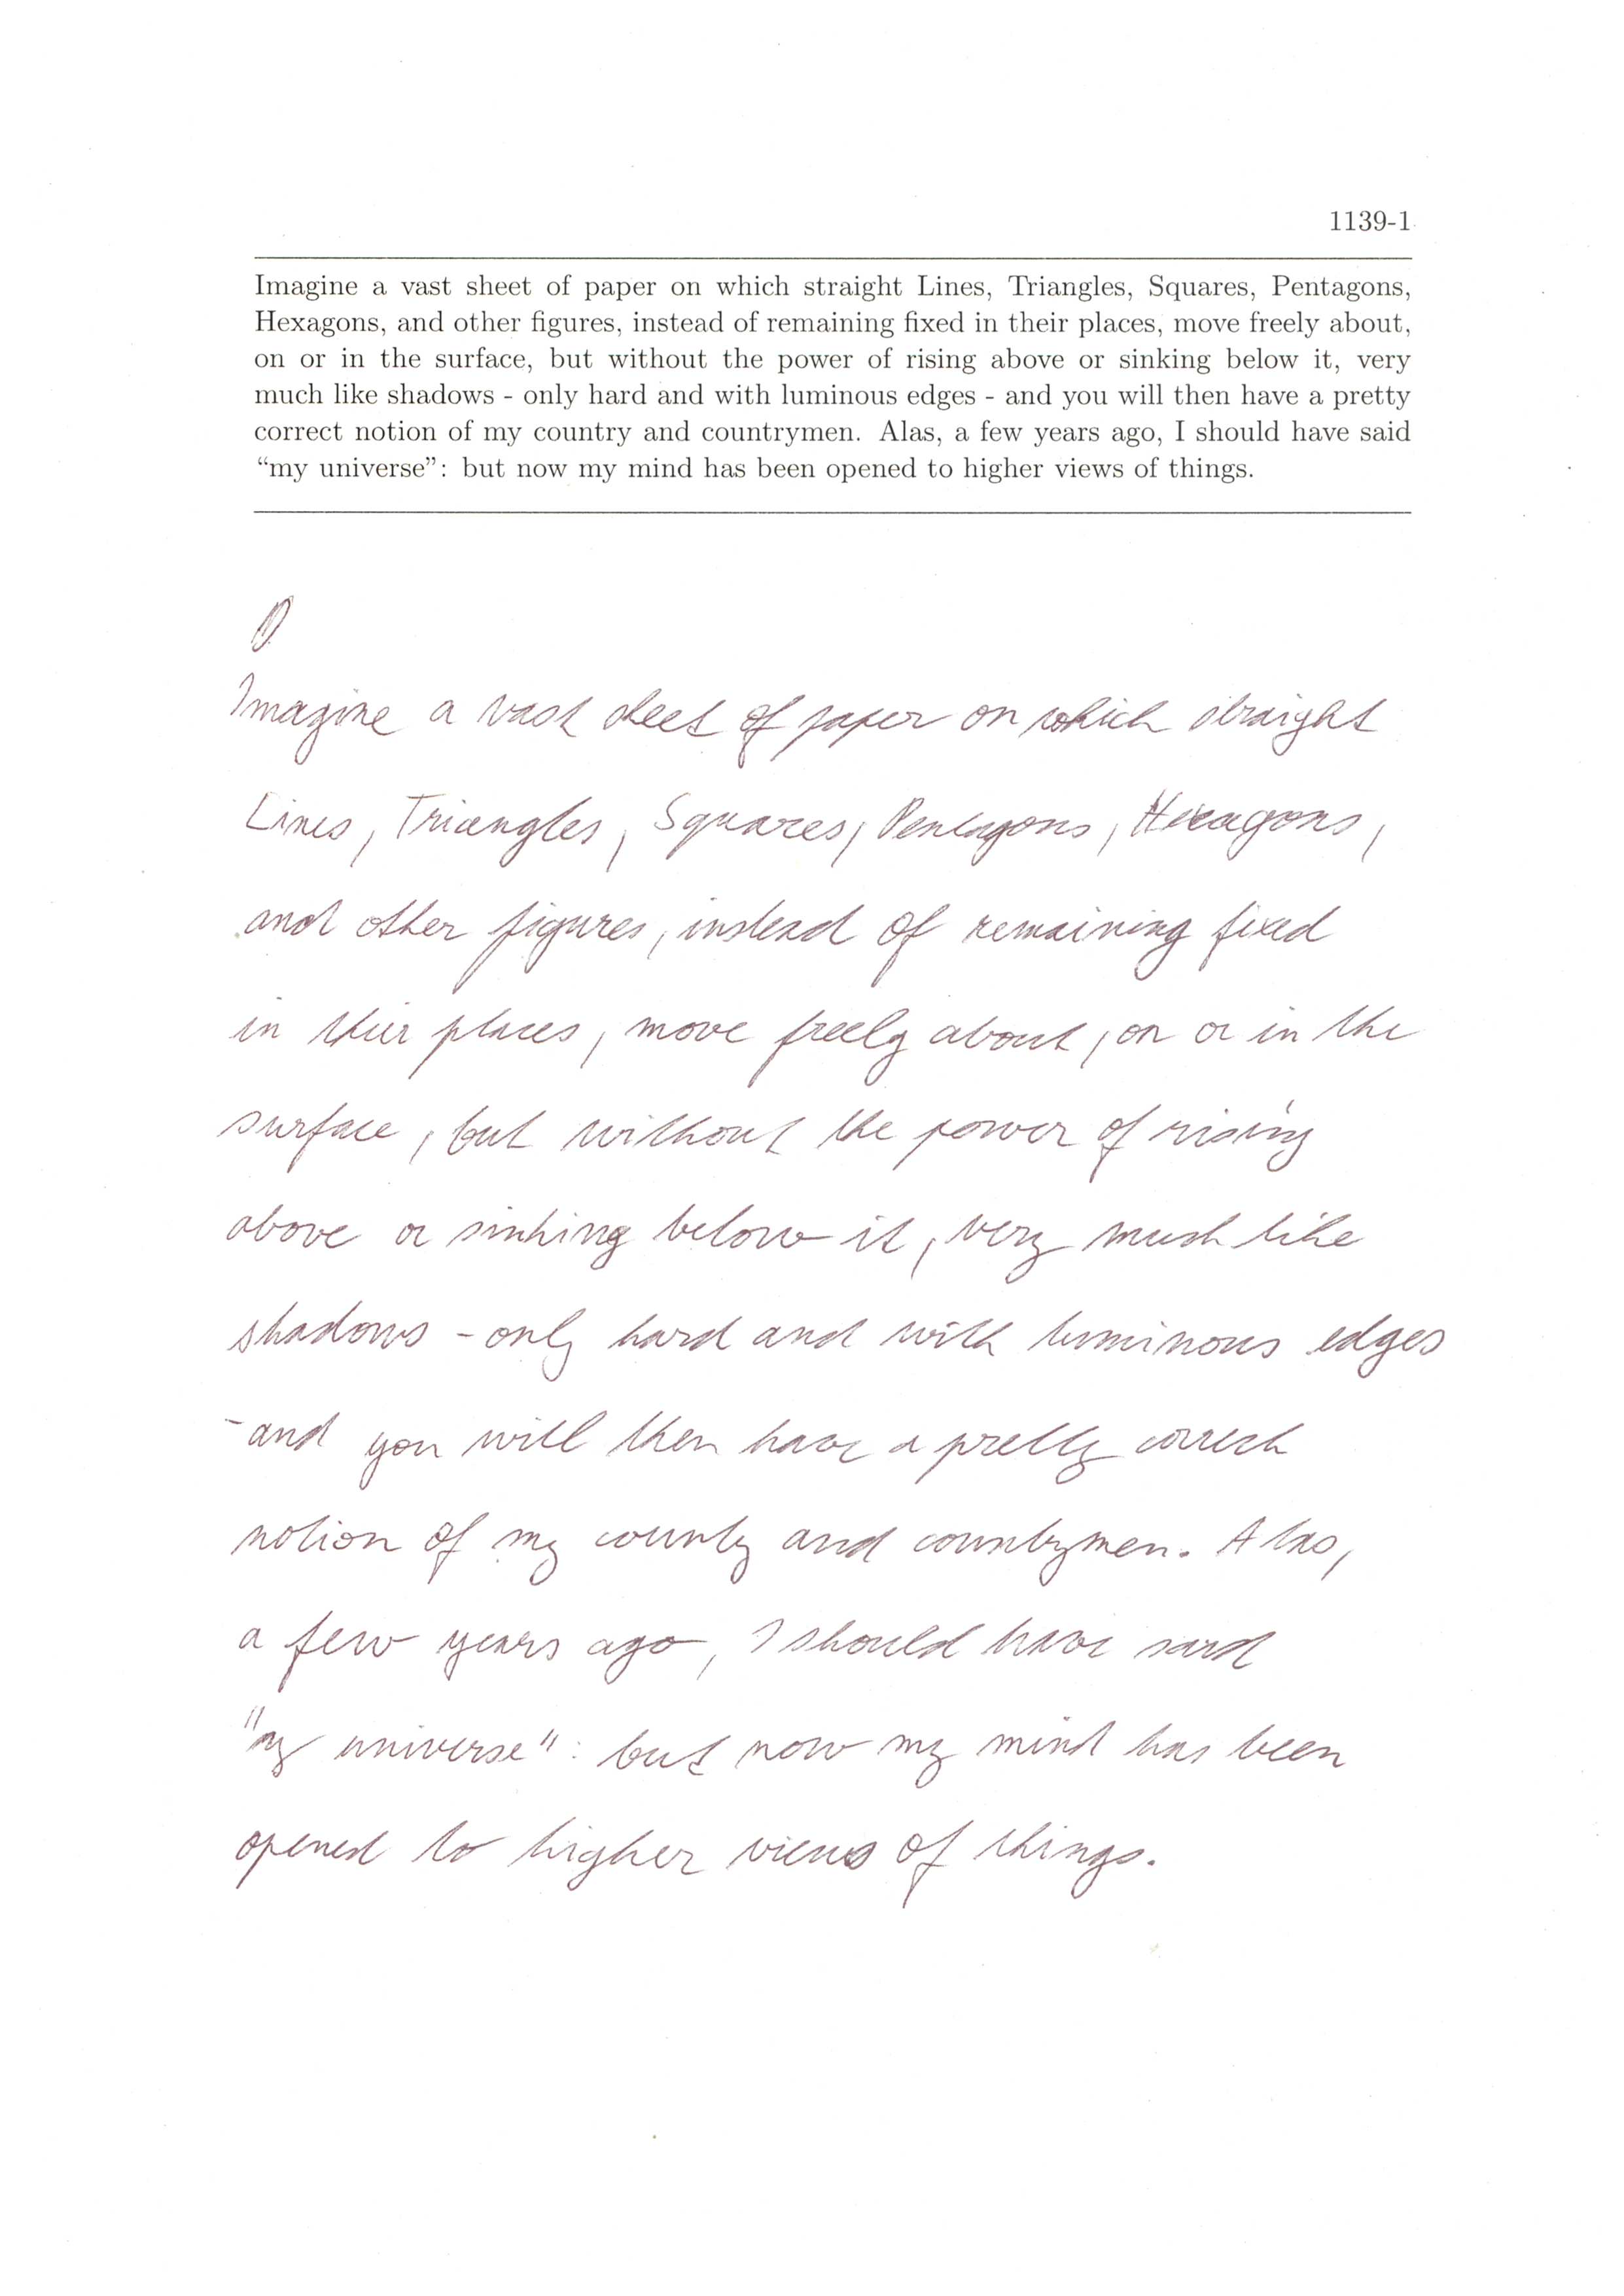 1139-1
Imagine a vast sheet of paper on which straight Lines, Triangles, Squares, Pentagons,
Hexagons, and other figures, instead of remaining fixed in their places, move freely about,
on or in the surface, but without the power of rising above or sinking below it, very
much like shadows - only hard and with luminous edges - and you will then have a pretty
correct notion of my country and countrymen. Alas, a few years ago, I should have said
“my universe”: but now my mind has been opened to higher views of things.
Imagine a vast sheet of paper on which straight
Lines, Triangles, Squares, Pentagons, Hexagons,
and other figures, instead of remaining fixed
in their places, move freely about, on or in the
surface, but without the power of rising
above or sinking below it, very much like
shadows - only hard and with luminous edges
- and you will then have a pretty correct
notion of my country and countrymen. Alas,
a few years ago, I should have said
"my universe": but now my mind has been
opened to higher views of things.